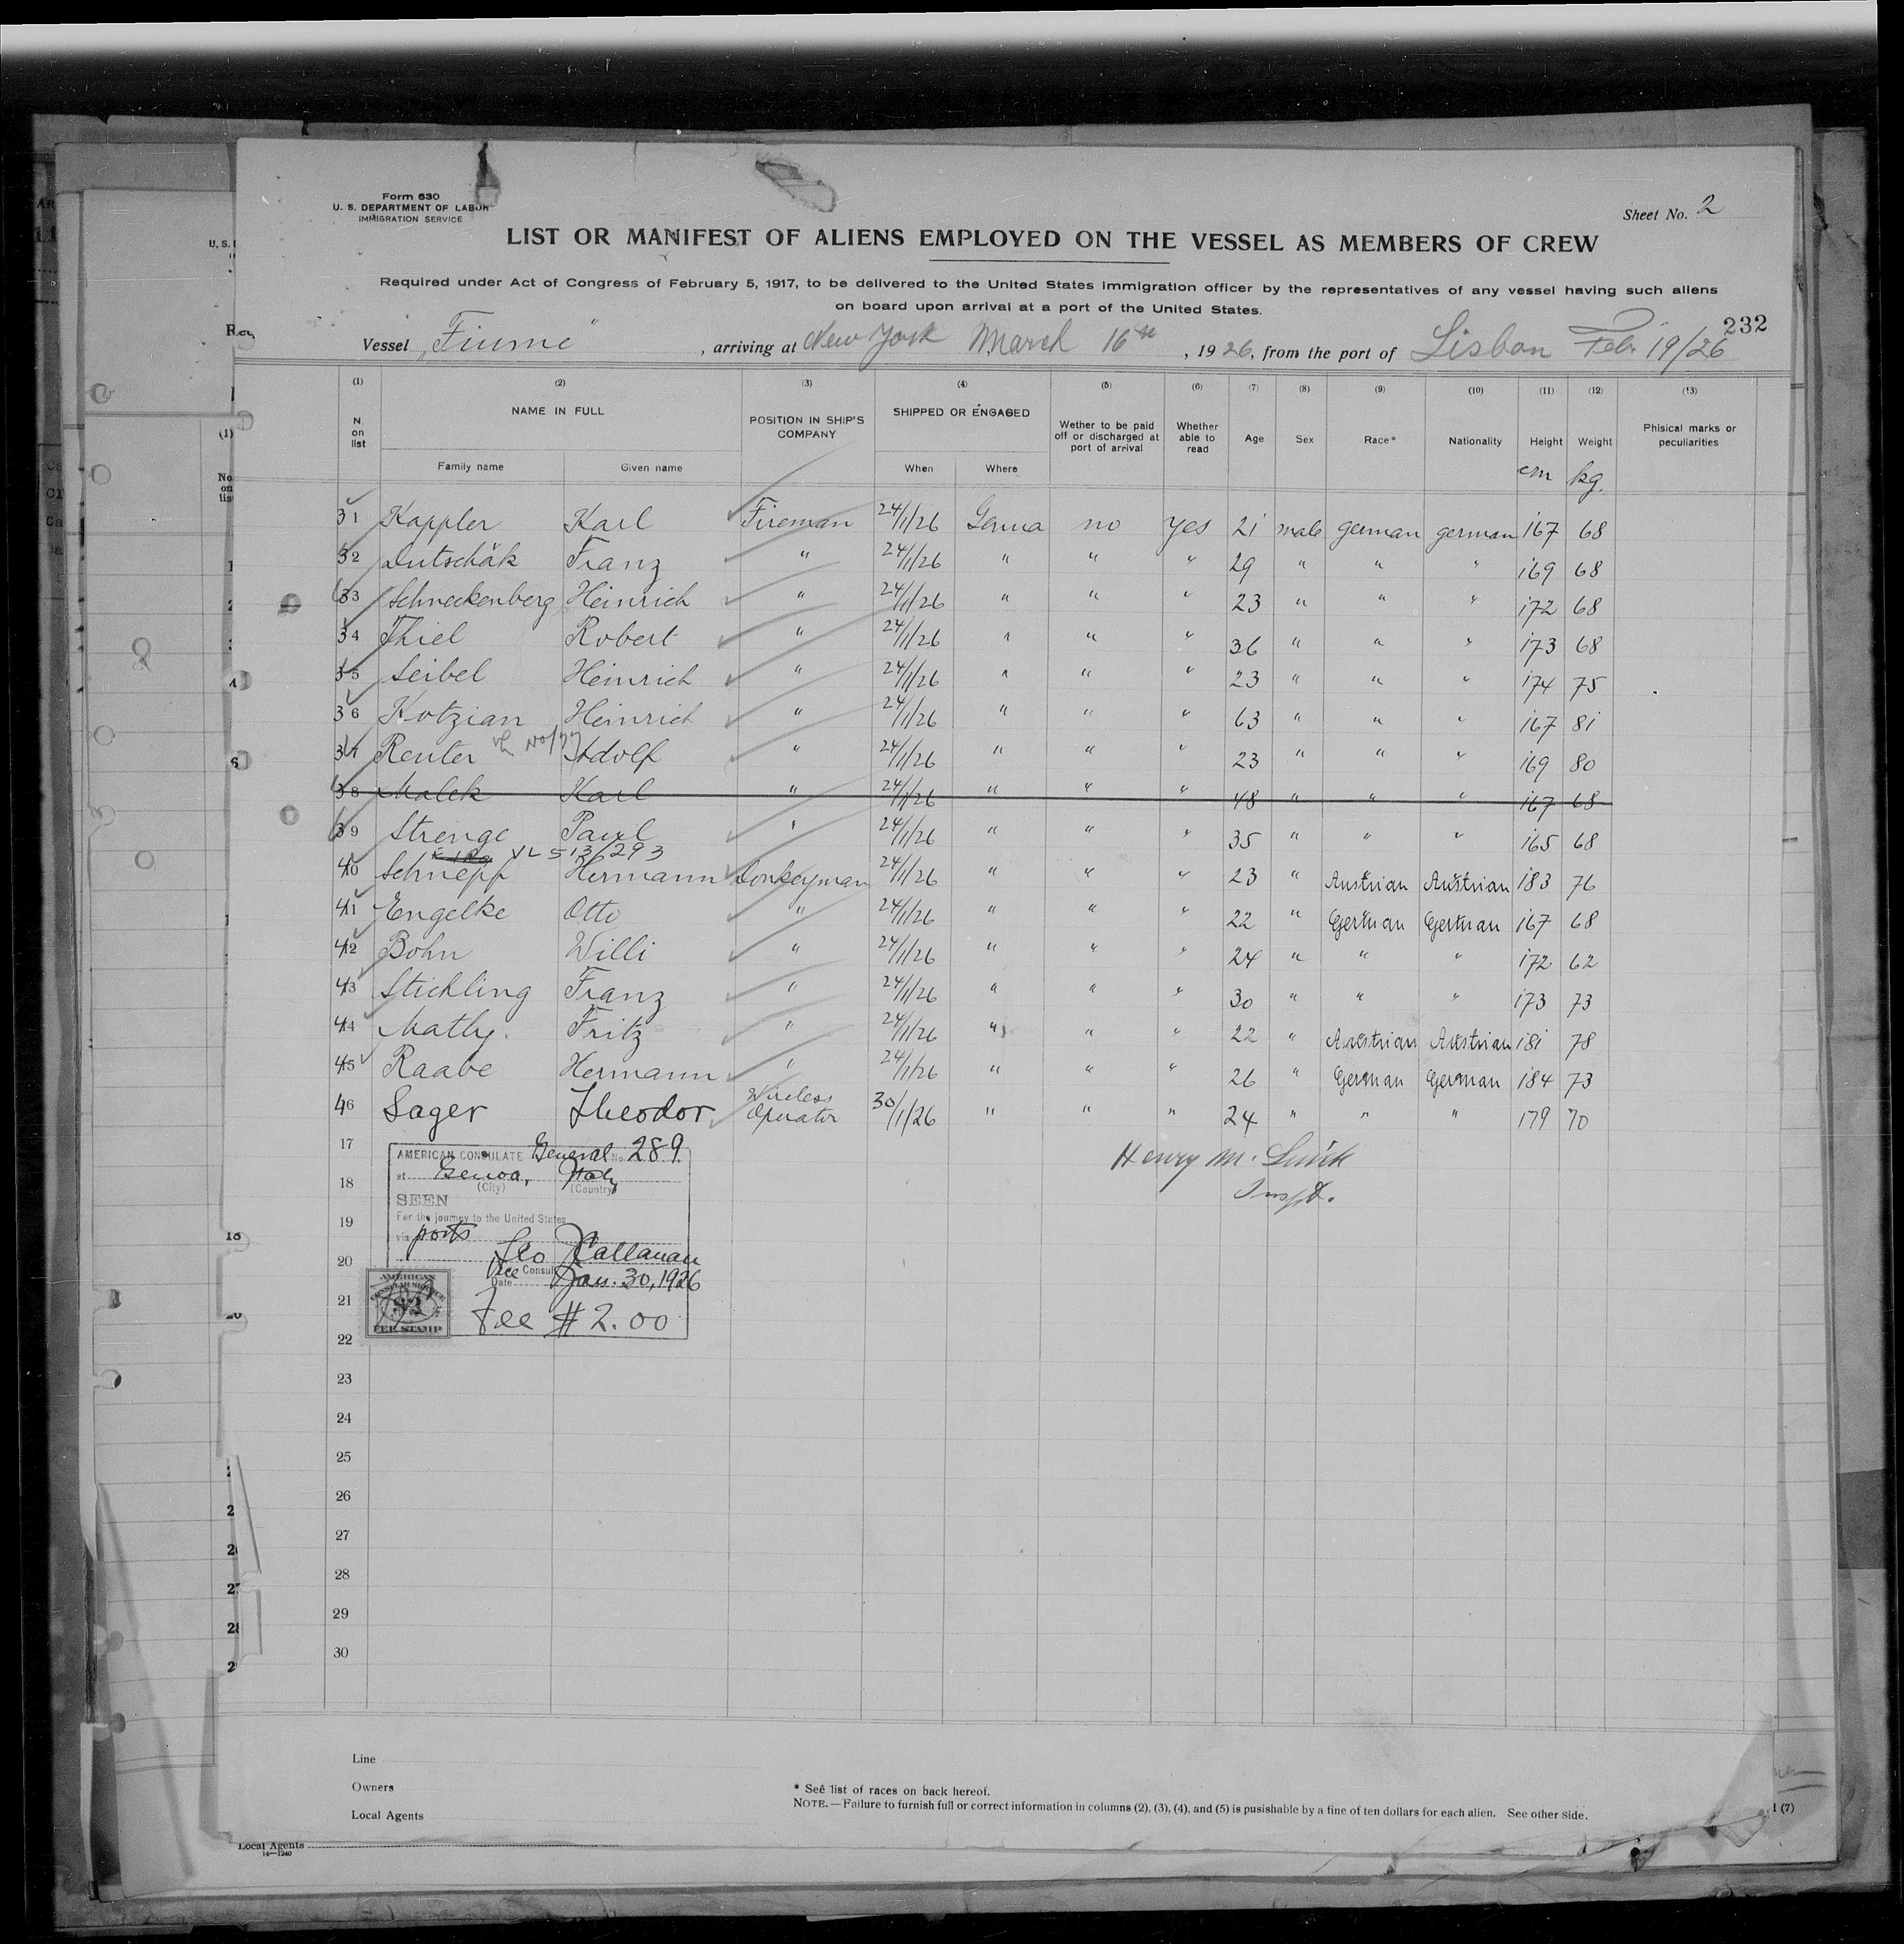 Form 630
U. S. DEPARTMENT OF LABOR
IMMIGRATION SERVICE
Sheet No. 2
LIST OR MANIFEST OF ALIENS EMPLOYED ON THE VESSEL AS MEMBERS OF CREW
Required under Act of Congress of February 5, 1917, to be delivered to the United States immigration officer by the representatives of any vessel having such aliens
on board upon arrival at a port of the United States.
232
Vessel „Fiume“, arriving at New York March 16th, 1926, from the port of Lisbon Feb. 19/26
(1) (2) (3) (4) (5) (6) (7) (8) (9) (10) (11) (12) (13)
N. on list NAME IN FULL POSITION IN SHIP'S COMPANY SHIPPED OR ENGAGED Wether to be paid off or discharged at port of arrival Whether able to read Age Sex Race* Nationality Height Weight Phisical marks or peculiarities
Family name Given name When Where cm kg.
31 Kappler Karl Fireman 24/1/26 Genua no yes 21 male german german 167 68
32 Dutschák Franz " 24/1/26 " " " 29 " " " 169 68
33 Schneckenberg Heinrich " 24/1/26 " " " 23 " " " 172 68
34 Thiel Robert " 24/1/26 " " " 36 " " " 173 68
35 Seibel Heinrich " 24/1/26 " " " 23 " " " 174 75
36 Kotzian Heinrich " 24/1/26 " " " 63 " " " 167 81
37 Renter Adolf " 24/1/26 " " " 23 " " " 169 80
38 Malek Karl " 24/1/26 " " " 48 " " " 167 68
39 Strenge Paul " 24/1/26 " " " 35 " " " 165 68
VL 513/293
40 Schnepf Hermann Donkeyman 24/1/26 " " " 23 " Austrian Austrian 183 76
41 Engelke Otto " 24/1/26 " " " 22 " German German 167 68
42 Bohn Willi " 24/1/26 " " " 24 " " " 172 62
43 Stichling Franz " 24/1/26 " " " 30 " " " 173 73
44 Mathy. Fritz " 24/1/26 " " " 22 " Austrian Austrian 181 78
45 Raabe Hermann " 24/1/26 " " " 26 " German German 184 73
46 Sager Theodor Wireless Operator 30/1/26 " " " 24 " " " 179 70
17
18
19
20
21
22
23
24
25
26
27
28
29
30
AMERICAN CONSULATE General No. 289
at Genoa, Italy
(City) (Country)
SEEN
For the journey to the United States
via ports
Leo J. Callanan
Vice Consul
Date Jan. 30, 1926
Fee $2.00
AMERICAN
CONSULAR SERVICE
$2
FEE STAMP
Henry M.
Inspt.
Line
Owners
Local Agents
* See list of races on back hereof.
NOTE. — Failure to furnish full or correct information in columns (2), (3), (4), and (5) is pusishable by a fine of ten dollars for each alien. See other side.
Local Agents
14—1240